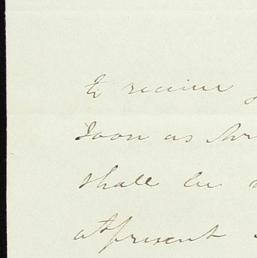 to receive
soon as
shall be
at present